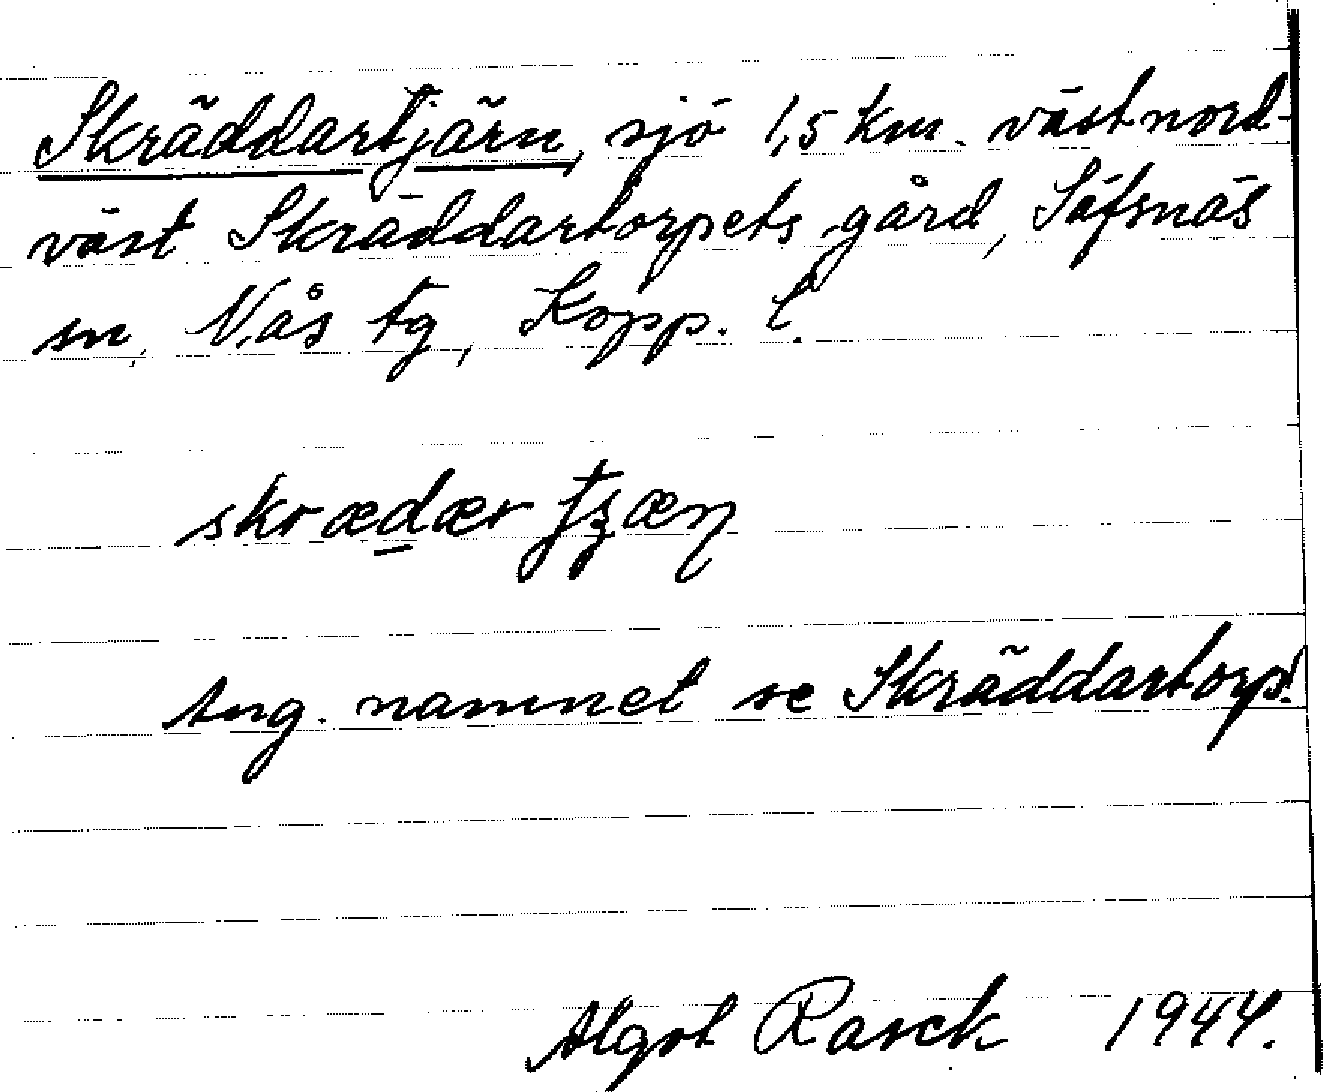 Skräddartjärn, sjö 1,5 km. västnord-
väst Skräddartorpets gård, Säfsnäs
sn, Nås tg, Kopp. l.
skrædær
Ang. namnet se Skräddartorp!
Algot Rasck 1944.